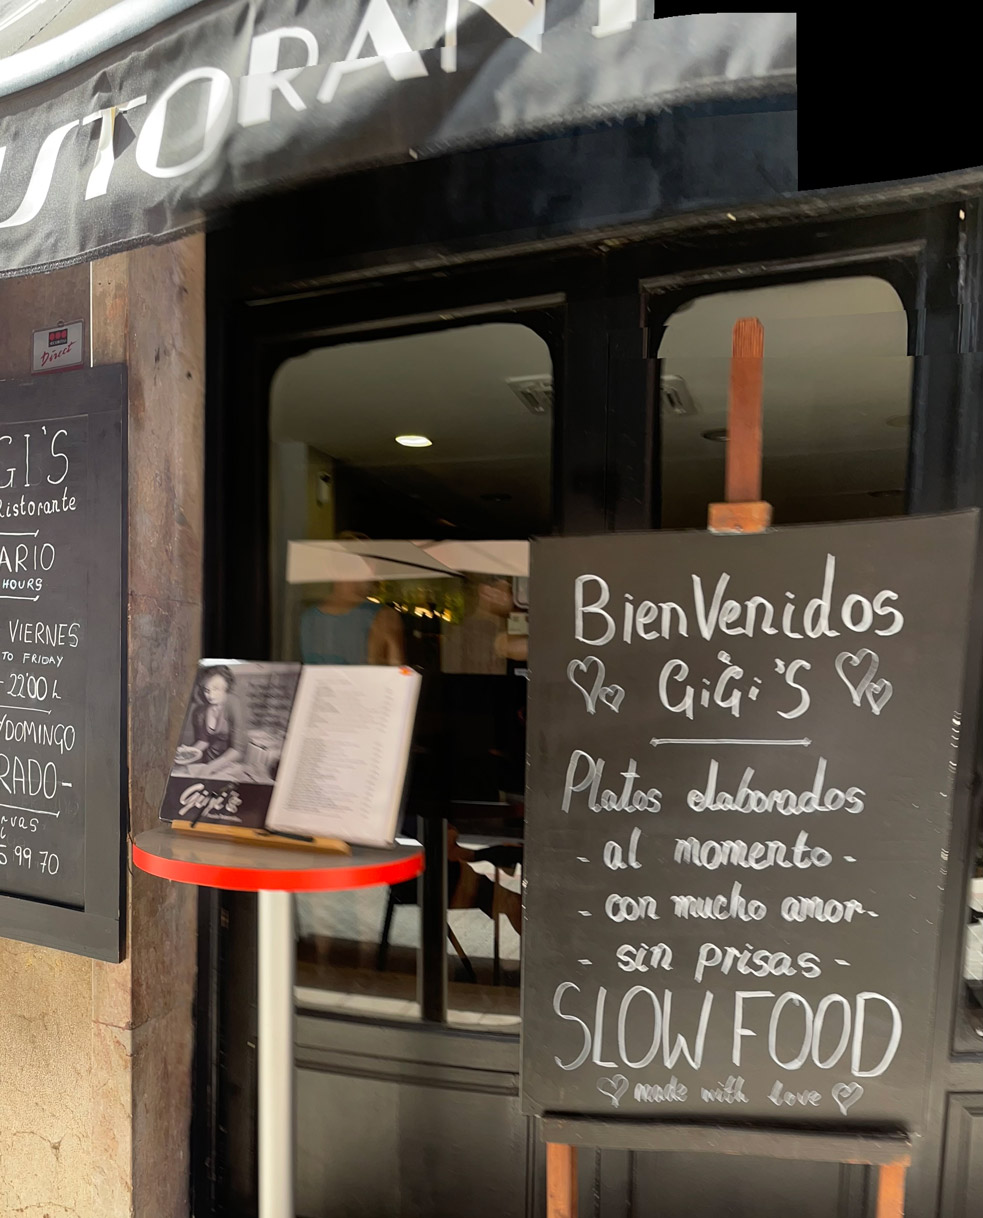 STORANT
Direct
GI'S
Ristorante
ARIO
HOURS
VIERNES
TO FRIDAY
- 22'00 h
/DOMINGO
RADO-
rvas
i
5 99 70
Gigi's
BienVenidos
GiGi'S
Platos elaborados
- al momento -
- con mucho amor-
- sin prisas -
SLOW FOOD
made with love